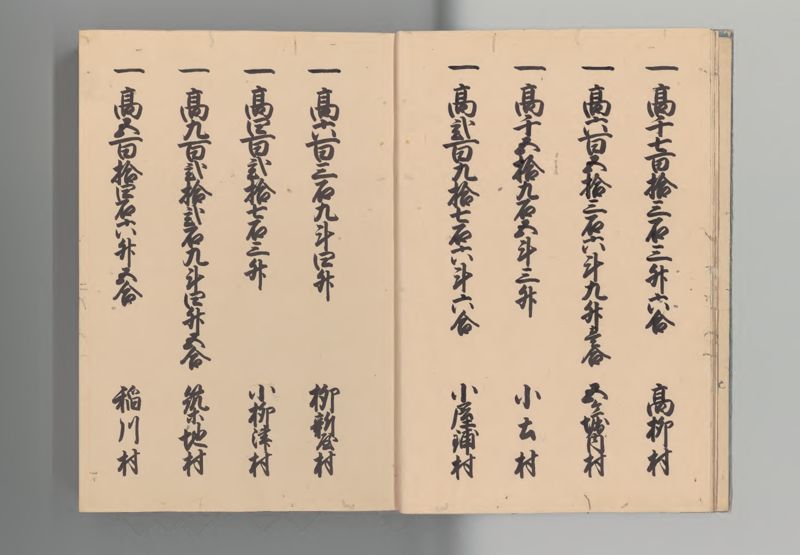 一高千七百拾三石三升六合 高柳村
一高六百五拾三石六斗九升壱合 五ケ堀村
一高千五拾九石五斗三升 小土村
一高弐百九拾七石六斗六合 小屋鋪村
一高六百三石九斗四升 柳新屋村
一高四百弐拾七石三升 小柳津村
一高九百弐拾弐石九斗四升五合 築地村
一高五百拾四石六升五合 稲川村